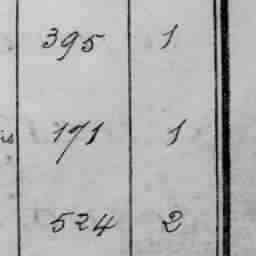 395 1
171 1
524 2